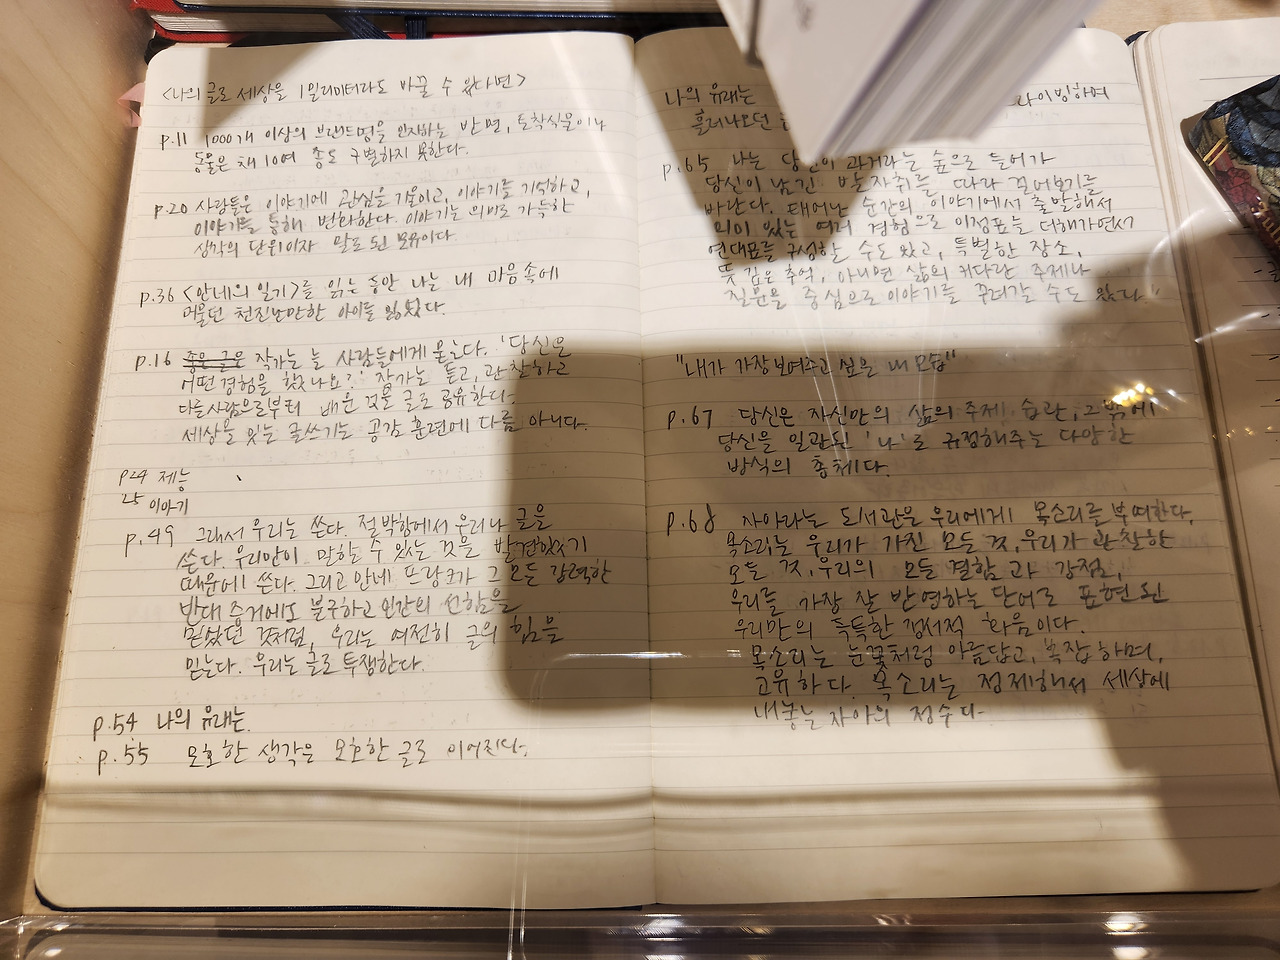 <나의 글로 세상을 1밀리미터라도 바꿀 수 있다면>
p.11 1000개 이상의 브랜드명을 인지하는 반면, 토착식물이나
동물은 채 10여 종도 구별하지 못한다.
p.20 사람들은 이야기에 관심을 기울이고, 이야기를 기억하고,
이야기를 통해 변화한다. 이야기는 의미로 가득한
생각의 단위이자 말로 된 묘유이다.
p.36 <안네의 일기>를 읽는 동안 나는 내 마음속에
머물던 천진난만한 아이를 잃었다.
p.16 좋은 글은 작가는 늘 사람들에게 묻는다. '당신은
어떤 경험을 했나요?' 작가는 듣고, 관찰하고
다른사람으로부터 배운 것을 글로 공유한다.
세상을 잇는 글쓰기는 공감 훈련에 다름 아니다.
p24 재능
25 이야기
p.49 그래서 우리는 쓴다. 절박함에서 우러나 글을
쓴다. 우리만이 말할 수 있는 것을 발견했기
때문에 쓴다. 그리고 안네 프랑크가 그 모든 강력한
반대 증거에도 불구하고 인간의 선함을
믿었던 것처럼, 우리는 여전히 글의 힘을
믿는다. 우리는 글로 투쟁한다.
p.54 나의 유래는
p.55 모호한 생각은 모호한 글로 이어진다.
나의 유래는 다이빙하며
흘러나오던
p.65 나는 당신이 과거라는 숲으로 들어가
당신이 남긴 발자취를 따라 걸어보기를
바란다. 태어난 순간의 이야기에서 출발해서
의미 있는 여러 경험으로 이정표를 더해가면서
연대표를 구성할 수도 있고, 특별한 장소,
뜻 깊은 추억, 아니면 삶의 커다란 주제나
질문을 중심으로 이야기를 꾸려갈 수도 있다."
"내가 가장 보여주고 싶은 내 모습"
p.67 당신은 자신만의 삶의 주제, 습관, 그 밖에
당신을 일관된 '나'로 규정해주는 다양한
방식의 총체다.
p.68 자아라는 도서관은 우리에게 목소리를 부여한다.
목소리는 우리가 가진 모든 것, 우리가 관찰한
모든 것, 우리의 모든 결함과 강점,
우리를 가장 잘 반영하는 단어로 표현된
우리만의 독특한 정서적 화음이다.
목소리는 눈꽃처럼 아름답고, 복잡하며,
고유하다. 목소리는 정제해서 세상에
내놓는 자아의 정수다.